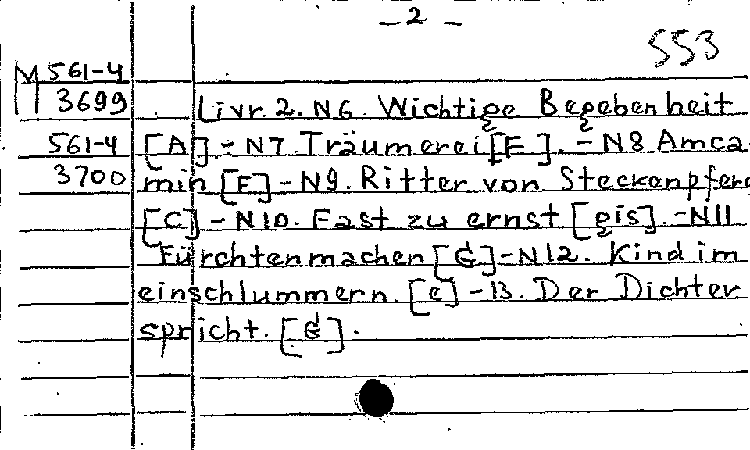 - 2 -
553
M 561-4
3699 Livr. 2. N6. Wichtige Begebenheit
561-4 [A]. - N7. Träumerei [F]. - N8 Amca
3700 min [F] - N9. Ritter von Steckenpferd
[C] - N10. Fast zu ernst [gis]. - N11
Fürchtenmachen [G] - N12. Kind im
einschlummern. [e] - 13. Der Dichter
spricht. [G].